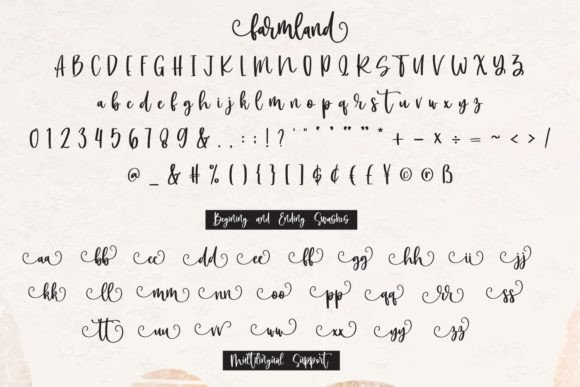 farmland
A B C D E F G H I J K L M N O P Q R S T U V W X Y Z
a b c d e f g h i j k l m n o p q r s t u v w x y z
0 1 2 3 4 5 6 7 8 9 & . , : ; ! ? ' " ‘ ’ “ ” * + - × ÷ = ~ < > /
@ _ & # % ( ) { } [ ] $ ¢ € £ ¥ © ® ß
Begining and Ending Swashes
aa bb cc dd ee ff gg hh ii jj
kk ll mm nn oo pp qq rr ss
tt uu vv ww xx yy zz
Multilingual Support